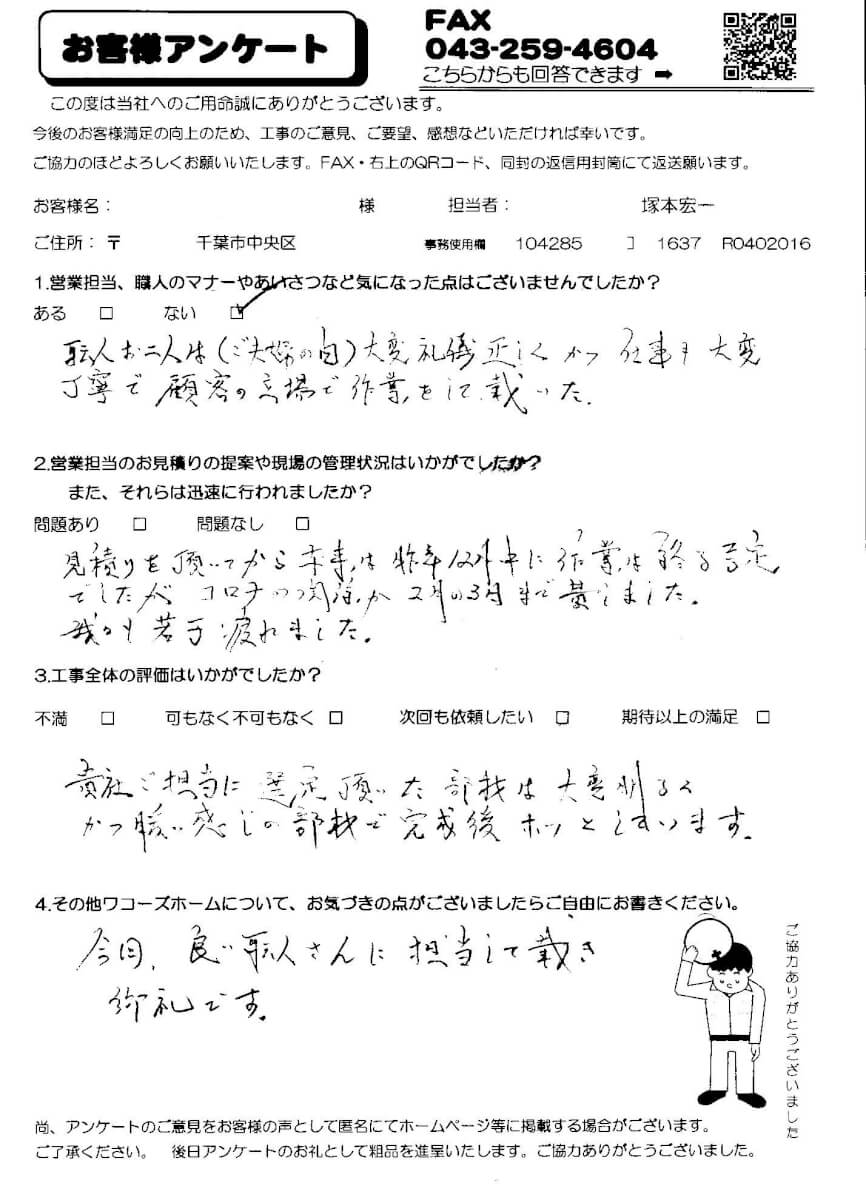 お客様アンケート
FAX
043-259-4604
こちらからも回答できます ➡
この度は当社へのご用命誠にありがとうございます。
今後のお客様満足の向上のため、工事のご意見、ご要望、感想などいただければ幸いです。
ご協力のほどよろしくお願いいたします。FAX・右上のQRコード、同封の返信用封筒にて返送願います。
お客様名： 様 担当者： 塚本宏一
ご住所：〒 千葉市中央区 事務使用欄 104285 ］ 1637 R0402016
1.営業担当、職人のマナーやあいさつなど気になった点はございませんでしたか？
ある □ ない ☑
職人お二人は(ご夫婦の自)大変礼儀正しくかつ仕事も大変
丁寧で顧客の立場で作業をして戴いた.
2.営業担当のお見積りの提案や現場の管理状況はいかがでしたか？
また、それらは迅速に行われましたか？
問題あり □ 問題なし □
見積りを頂いてから本来は昨年12月中に作業は終る予定
でしたが コロナの関係か 2月の3月まで
我々も若干疲れました。
3.工事全体の評価はいかがでしたか？
不満 □ 可もなく不可もなく □ 次回も依頼したい □ 期待以上の満足 □
貴社ご担当に選定頂いた部材は大変明るく
かつ暖い感じの部材で完成後ホッとしています。
4.その他ワコーズホームについて、お気づきの点がございましたらご自由にお書きください。
今回、良い職人さんに担当して戴き
御礼です。
ご協力ありがとうございました
尚、アンケートのご意見をお客様の声として匿名にてホームページ等に掲載する場合がございます。
ご了承ください。 後日アンケートのお礼として粗品を進呈いたします。ご協力ありがとうございました。